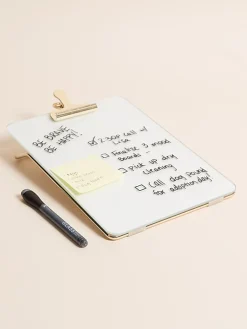 BE BRAVE
BE HAPPY!
2:30p call w/
Lisa
Finalize 3 mood
boards
pick up dry
cleaning
Call dog pound
for adoption day!